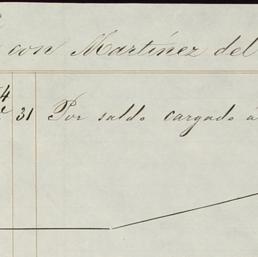 con Martínez del
4
31 Por saldo cargado á